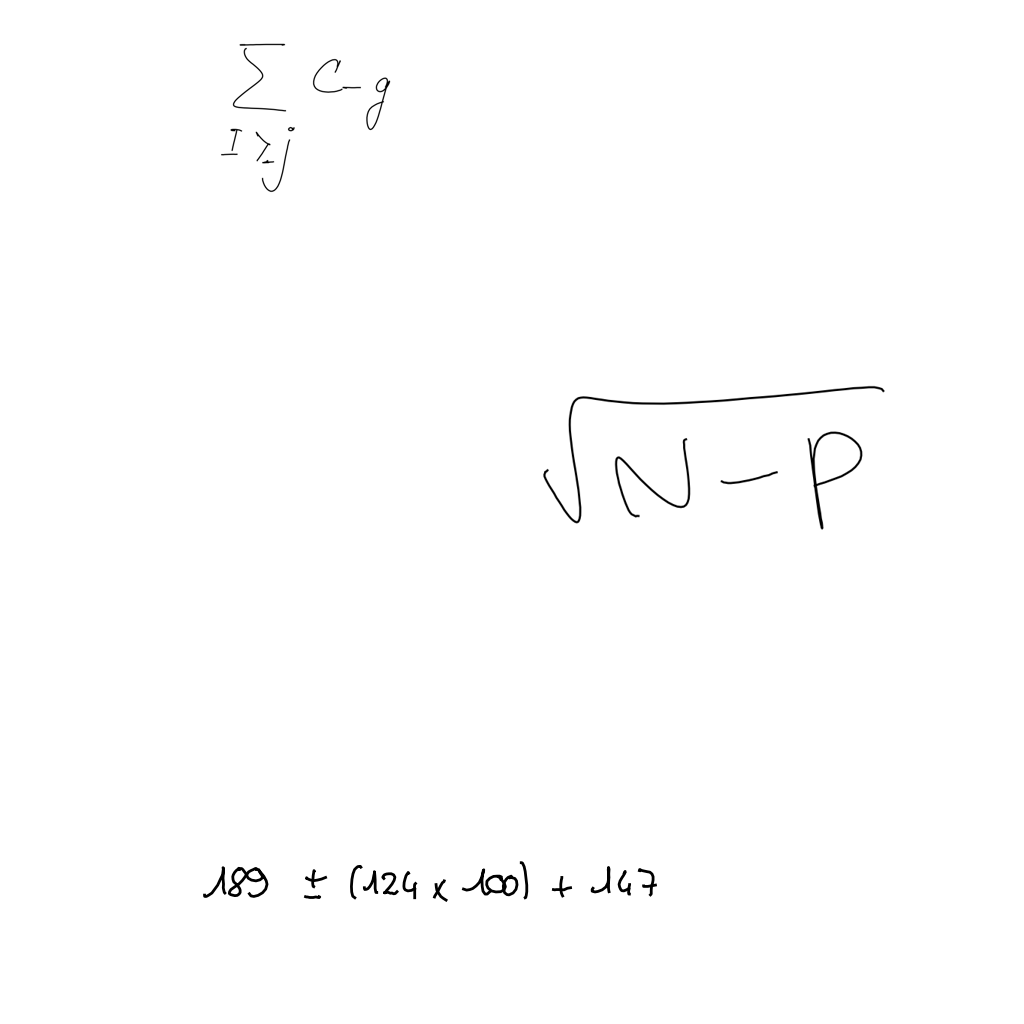 \sum_{I \geq j} C - g
\sqrt{N - P}
189 ± (124 x 100) + 147